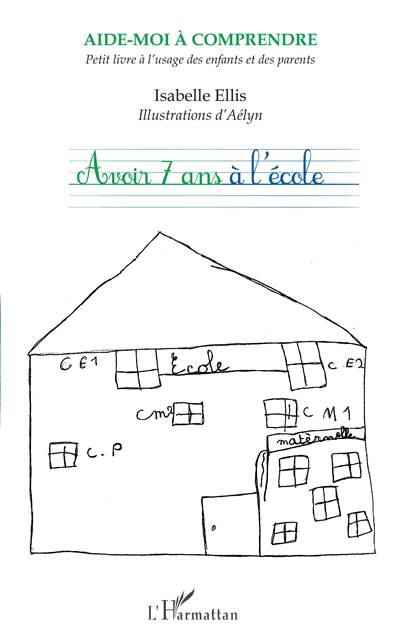 AIDE-MOI À COMPRENDRE
Petit livre à l'usage des enfants et des parents
Isabelle Ellis
Illustrations d'Aélyn
Avoir 7 ans à l'école
CE1
École
CE2
cm2
CM1
maternelle
C.P
L'Harmattan